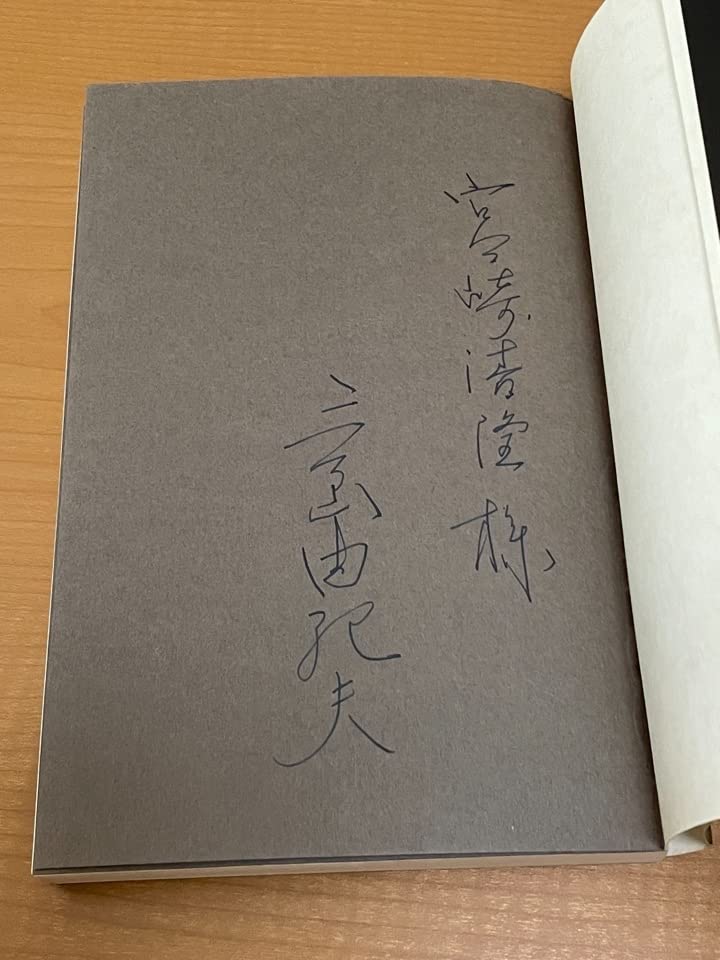 宮崎清隆様
三島由紀夫